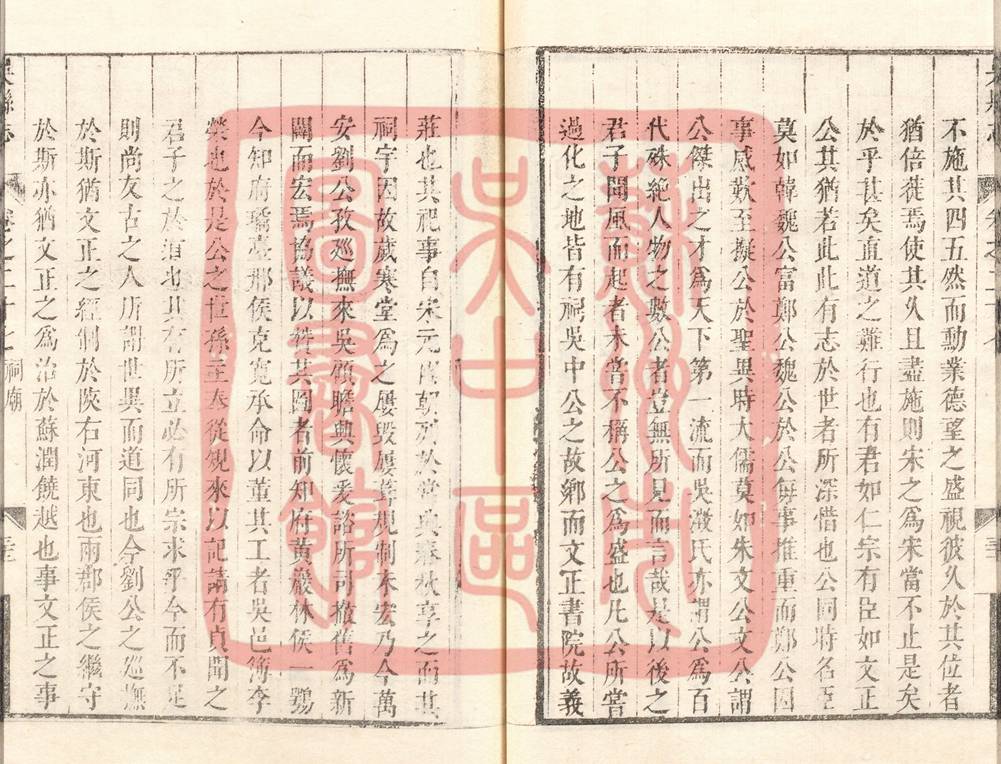 不施其四五然而動業德望之盛視彼久於其位者
猶倍蓰焉使其久且盡施則宋之爲宋當不止是矣
於乎甚矣直道之難行也有君如仁宗有臣如文正
公其猶若此此有志於世者所深惜也公同時名臣
莫如韓魏公富鄭公魏公於公每事推重而鄭公因
事感歎至擬公於聖異時大儒莫如朱文公文公謂
公傑出之才爲天下第一流而吳澂氏亦謂公爲百
代殊絶人物之數公者豈無所見而言哉是以後之
君子聞風而起者未嘗不稱公之爲盛也凡公所嘗
過化之地皆有祠吳中公之故鄉而文正書院故義
莊也其祀事自宋元國朝列於常典春秋享之而其
祠宇因故歲寒堂爲之屢毀屢葺規制未宏乃今萬
安劉公孜廵撫來吳顧瞻興懷爰諮所司撤舊爲新
闢而宏焉協議以祥其圖者前知府黃巖林侯一鶚
今知府瑪邢侯克寬承命以董其工者吳邑簿李
榮也於是公之世孫主奉從規來以記請有貞聞之
君子之於道也其有所立必有所宗求乎今而不足
則尚友古之人所謂世異而道同也今劉公之廵撫
於斯猶文正之經制於陜右河東也兩郡侯之繼守
於斯亦猶文正之爲治於蘇潤饒越也事文正之事
卷之二十七
祠廟
蘇州
吳中區
圖書館